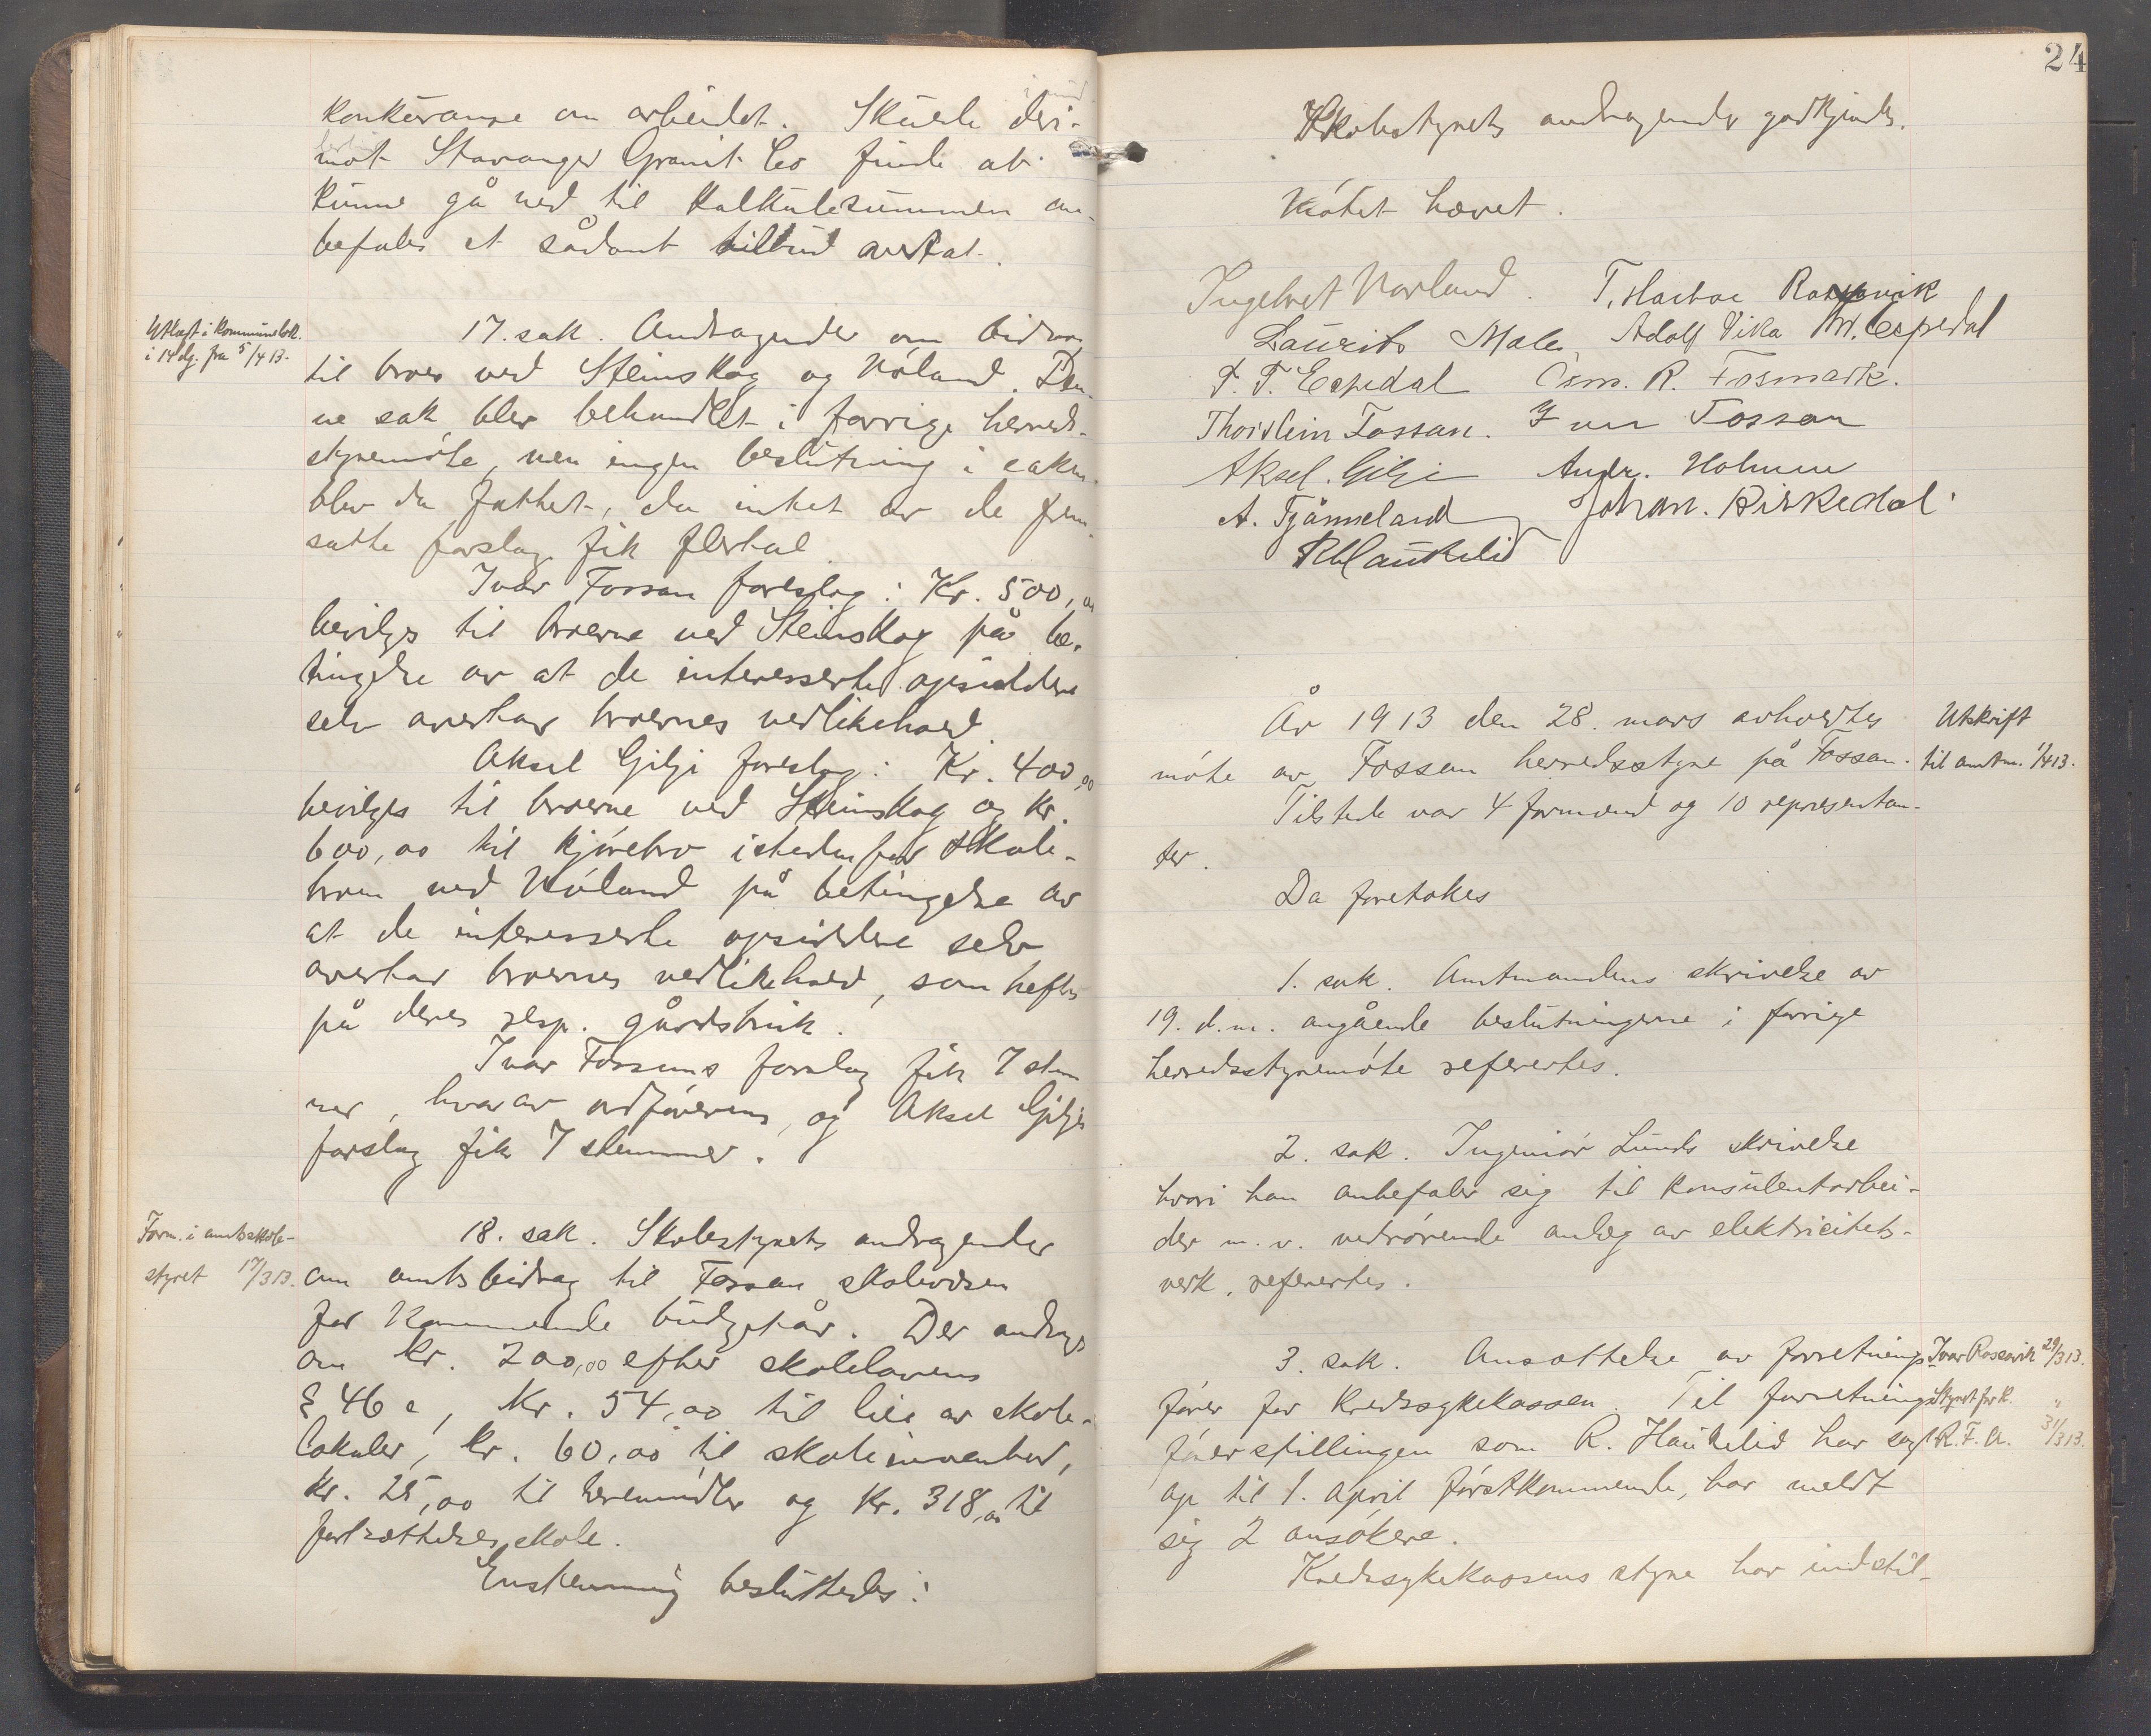 konkuranse om arbeidet. Skulde deri-
mot Stavanger Granit Co finde at
kunne gå ned til kalkulesummen an-
befales et sådant tilbud avertat.
Utlagt i kommunelok.
i 14 dg. fra 5/4 13.
17. sak. Andragender om bidrag
til broer ved Steinskog og Nóland. Den-
ne sak blev behandlet i forrige herreds-
styremóte, men ingen beslutning i saken
blev da fattet, da intet av de frem-
satte forslag fik flertal.
Ivar Fossan foreslog: Kr. 500,00
bevilges til broerne ved Steinskog på be-
tingelse av at de interesserte opsiddere
selv overtar broernes vedlikehold.
Aksel Gilje foreslog: Kr. 400,00
bevilges til broerne ved Steinskog og kr.
600,00 til kjórebro istedenfor skole-
broen ved Nóland på betingelse av
at de interesserte opsiddere selv
overtar broernes vedlikehold, som heftes
på deres resp. gårdsbruk.
Ivar Fossans forslag fik 7 stem
mer, hvorav ordfórerens, og Aksel Giljes
forslag fik 7 stemmer.
Form. i amtsskole-
styret 17/3 13.
18. sak. Skolestyrets andragender
om amtsbidrag til Fossan skolevæsen
for kommende budgetår. Der andrages
om kr. 200,00 efter skolelovens
§ 46 e, kr. 54,00 til leie av skole-
lokaler, kr. 60,00 til skoleinventar,
kr. 25,00 til læremidler og kr. 318,00 til
fortsættelsesskole.
Enstemmig besluttedes:
24
Skolestyrets andragender godkjendes.
Mótet hævet.
Ingebret Norland. T. Haaboe Rossavik
Laurits Mæle, Adolf Vika M. Espedal
T. T. Espedal Osm. R. Fosmark.
Thorstein Fossan. Ivar Fossan
Aksel. Gilje Andr. Holmen
A. Tjånneland Johan. Birkedal.
R Haukelid
År 1913 den 28. mars avholdtes
Utskrift
móte av Fossan herredsstyre på Fossan.
til amtm. 1/4 13.
Tilstede var 4 formænd og 10 repræsentan-
ter.
Da foretokes
1. sak. Amtmandens skrivelse av
19. d.m. angående beslutningerne i forrige
herredsstyremóte refertes.
2. sak. Ingeniór Lunds skrivelse
hvori han anbefaler sig til konsulentarbei-
der m.v. vedrórende anlæg av elektricitets-
verk, refertes.
3. sak. Ansættelse av forretnings-
Ivar Rossavik 29/3 13.
fórer for kredssykekassen. Til forretnings-
Styret for K. "
fórerstillingen som R. Haukelid har sagt
R. F. A. 31/3 13.
op til 1. april fórstkommende, har meldt
sig 2 ansókere.
Kredssykekassens styre har indstil-